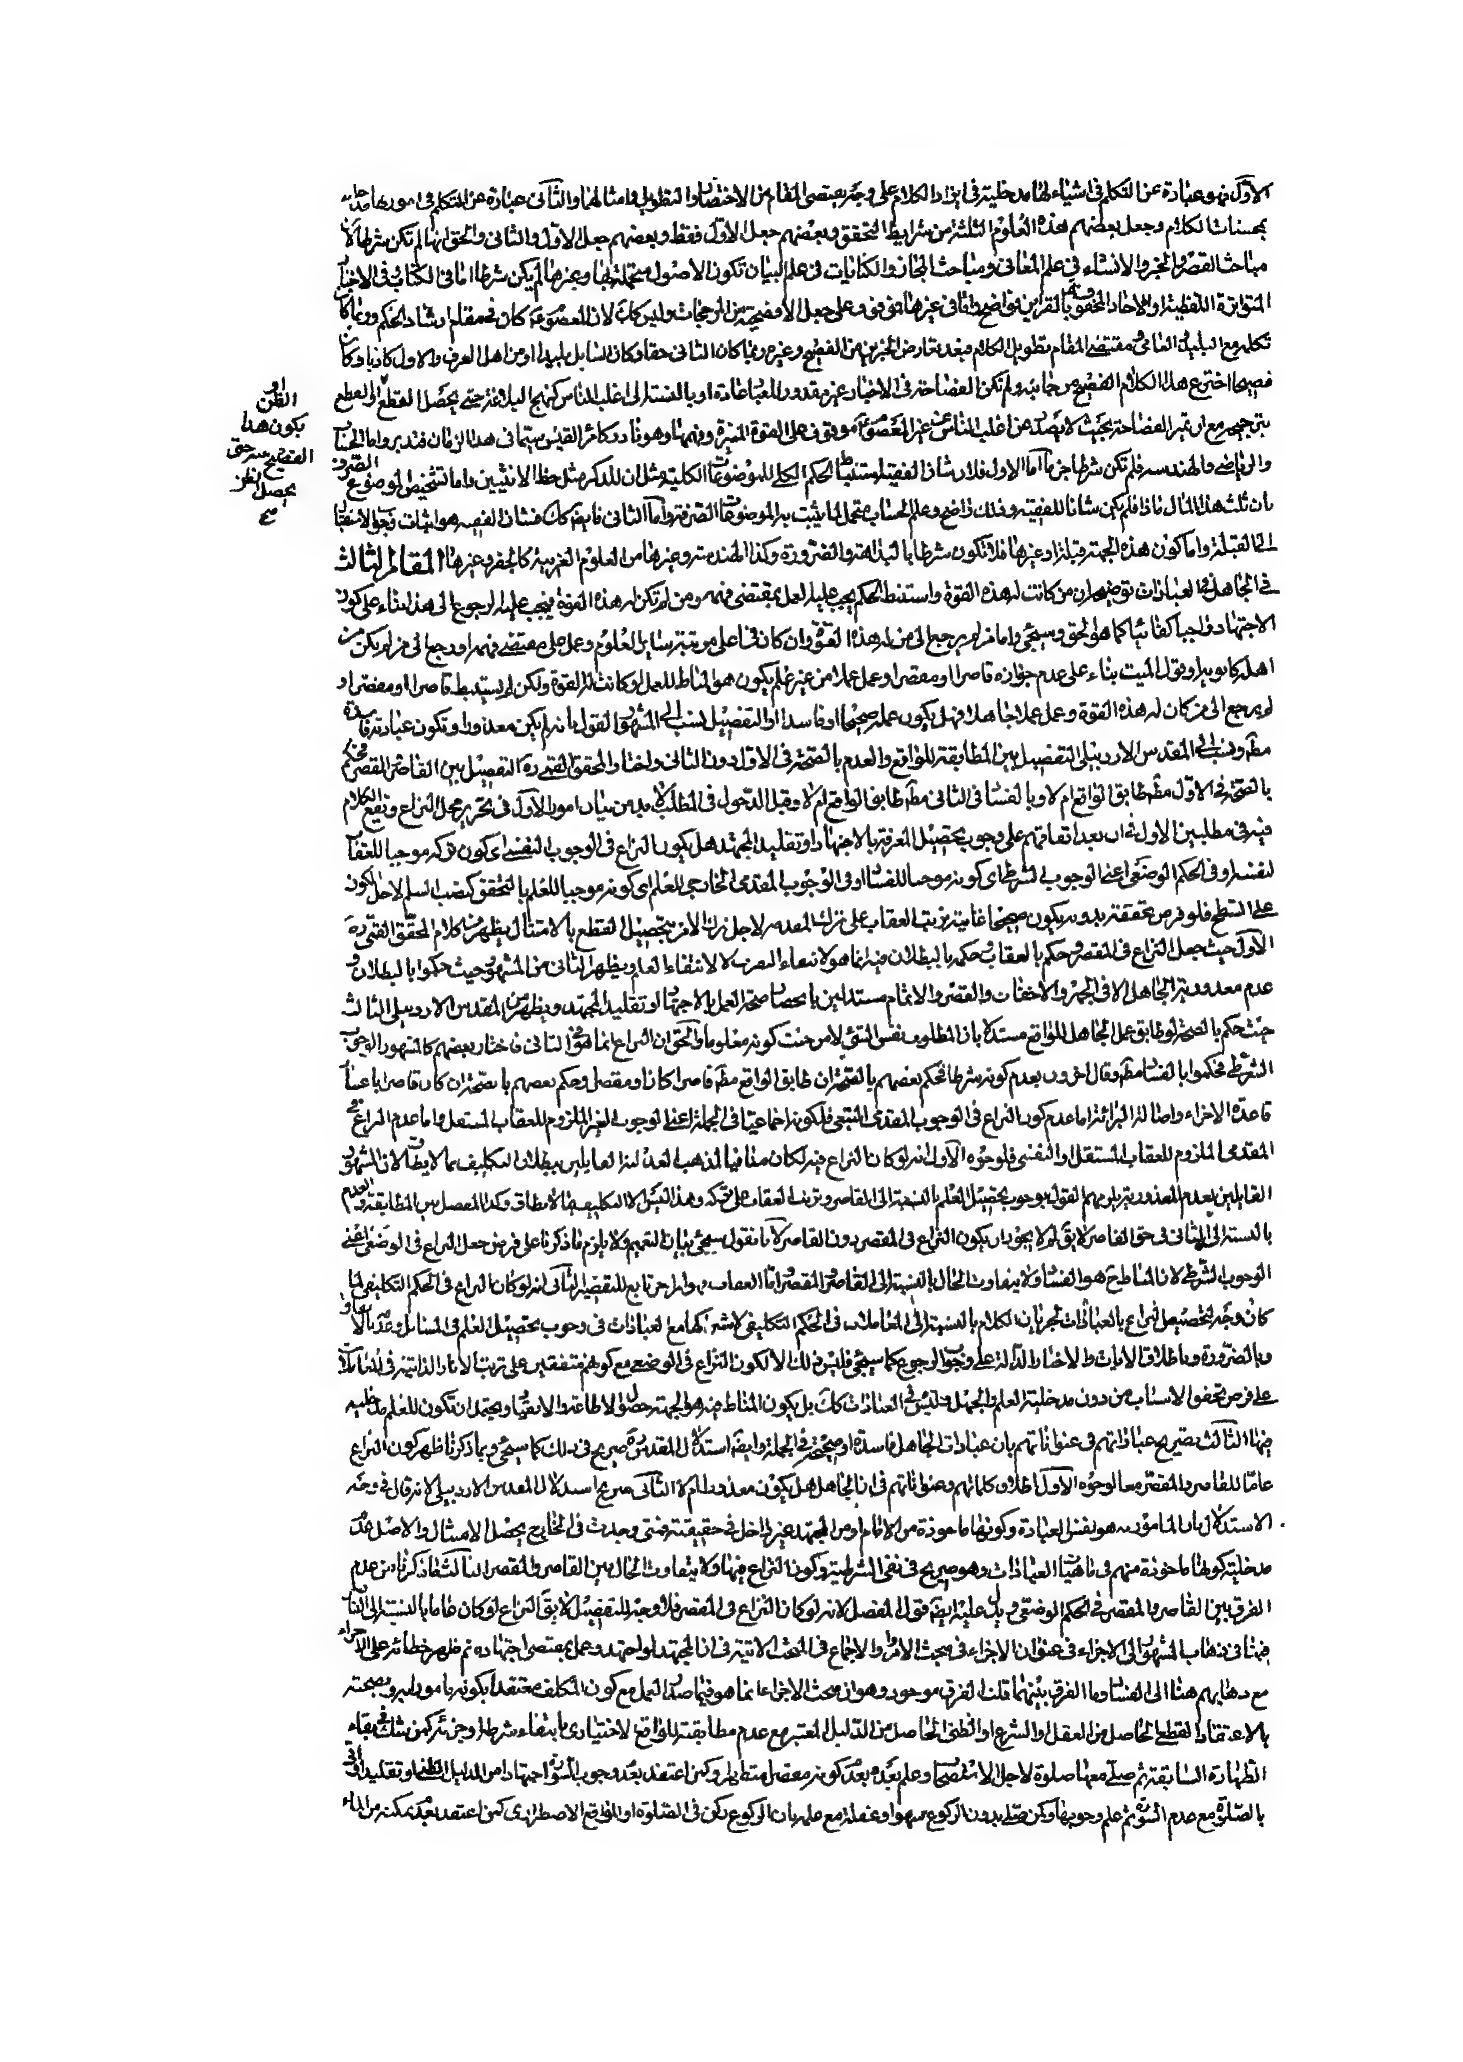 الاوّل فهو عبارة عن التكلم في اشياء لها مدخلية في ايراد الكلام على وجه يقتضى المقام من الاختصار والتطويل وامثالهما والثانى عبارة عن التكلم في امور لها مدخلية
بمحسنات الكلام وجعل بعضهم هذه العلوم الثلثة من شرايط التحقق وبعضهم جعل الاول فقط وبعضهم جعل الاول والثانى والحق انها لم تكن شرطا لان
مباحث القصر والخبر والانشاء في علم المعانى ومباحث المجاز والكنايات في علم البيان تكون الاصول متحملة لها وغيرها لم يكن شرطا اما في الكتاب وفي الاخبار
المتواترة اللفظية او الاحاد المحفوفة بالقراين فواضح واما في غيرها فتوقفه وعلى جعل الافصحية من المرجحات وليس كك لان المعصوم ع كان في مقام ارشاد الحكم وربما كان
تكلمه مع البليد العامى مقتضى المقام تطويل الكلام فبعد تعارض الخبرين من الفصيح وغيره ربما كان الثانى حقا وكان السايل بليدا او من اهل العرف والاول كاذبا وكان
فصيحا اخترع هذا الكلام الفصيح من جانبه ولم تكن الفصاحة في الاخبار غير مقدور للعباد عادة او بالنسبة الى اغلب الناس كنهج البلاغة حتى يحصل القطع او الظن
بترجيحه مع ان تميز الفصاحة بحيث لا يصدر من اغلب الناس عن غير المعصوم ع موقوف على القوة المميزة وفهمها وهو نادر وكامر القيس سيما في هذا الزمان فتدبر واما الحساب
والرياضى والهندسه فلم تكن شرطا جزما اما الاول فلان شان الفقيه استنباط الحكم الكلى للموضوعات الكلية مثل ان للذكر مثل حظ الانثيين واما تشخيص الموضوع الصرف
بان ثلث هذا المال ماذا فلم يكن شانا للفقيه وذلك واضح وعلم الحساب متحمل لما يثبت به الموضوعات الصرفة واما الثانى فايضا كك فشان الفقيه هو اثبات وجوب الاستقبال
الى القبلة واما كون هذه الجهة قبلة او غيرها فلا تكون شرطا بالبداهة والضرورة وكذا الهندسة وغيرها من العلوم الغريبة كالجفر وغيرها المقام الثالث
في الجاهل في العبادات توضيحه ان من كانت له هذه القوة واستنبط الحكم يجب عليه العمل بمقتضى فهمه ومن لم تكن له هذه القوة فيجب عليه الرجوع الى هذا بناء على كون
الاجتهاد واجبا كفائيا كما هو الحق وسيجئ واما من لم يرجع الى من له هذه القوة وان كان في اعلى مرتبة ساير العلوم وعمل على مقتضى فهمه او رجع الى من لم يكن من
اهله كابويه او بقول الميت بناء على عدم جوازه قاصرا او مقصرا وعمل عملا من غير علم يكون هو المناط للعمل او كانت له القوة ولكن لم يستنبط قاصرا او مقصرا و
لم يرجع الى من كان له هذه القوة وعمل عملا جاهلا فهل يكون عمله صحيحا او فاسدا او التفصيل نسب الى المشهور القول بانه لم يكن معذورا وتكون عباداته فاسدة
مطلقا ونسب الى المقدس الاردبيلى التفصيل بين المطابقة للواقع والعدم بالصحة في الاول دون الثانى واختار المحقق القمى ره التفصيل بين القاصر والمقصر فحكم
بالصحة في الاول مطلقا طابق الواقع ام لا وبالفساد في الثانى مطلقا طابق الواقع ام لا وقبل الدخول في المطلب لابد من بيان امور الاول في تحرير محل النزاع ويقع الكلام
فيه في مطلبين الاول في ان بعد اتفاقهم على وجوب تحصيل المعرفة بالاجتهاد او تقليد المجتهد هل يكون النزاع في الوجوب النفسى اى كون تركه موجبا للعقاب
لنفسه او في الحكم الوضعى اعنى الوجوب الشرطى اى كونه موجبا للفساد او في الوجوب المقدمى الخارجى للعلم اى كونه موجبا للعلم بالتحقق كنصب السلم لاجل الكون
على السطح فلو فرض تحققه بدونه يكون صحيحا غاية ترتب العقاب على ترك المقدمه لاجل ترك الامر بتحصيل القطع بالامتثال يظهر من كلام المحقق القمى ره
الاول حيث جعل النزاع في المقصر وحكم بالعقاب وحكمه بالبطلان فيه انما هو لانتفاء التقرب لا لانتفاء العلم ويظهر الثانى من المشهور حيث حكموا بالبطلان و
عدم معذورية الجاهل الا في الجهر والاخفات والقصر والاتمام مستدلين بانحصار صحة العمل بالاجتهاد او تقليد المجتهد ويظهر من المقدس الاردبيلى الثالث
حيث حكم بالصحة لو طابق عمل الجاهل للواقع مستدلا بان المطلوب نفس الشئ لا من حيث كونه معلوما والحق ان النزاع انما هو في الثانى فاختار بعضهم كالمشهور الوجوب
الشرطى فحكموا بالفساد مطلقا وقال اخرون بعدم كونه شرطا فحكم بعضهم بالصحة ان طابق الواقع مطلقا قاصرا كان او مقصرا وحكم بعضهم بالصحة ان كان قاصرا باعتبار
قاعدة الاجزاء واصالة البرائة اما عدم كون النزاع في الوجوب المقدمى التبعى فلكونه اجماعيا في الجملة اعنى الوجوب الغير الملزوم للعقاب المستقل واما عدم النزاع في
المقدمى الملزوم للعقاب المستقل او النفسى فلوجوه الاول انه لو كان النزاع فيه لكان منافيا لمذهب العدلية القايلين ببطلان التكليف بما لا يطاق لان المشهور
القايلين بعدم المعذورية يلزمهم القول بوجوب تحصيل العلم بالنسبة الى القاصر وترتب العقاب على تركه وهذا ليس الا التكليف بما لا يطاق وكذا المفصل بين المطابقة والعدم
بالنسبة الى الثانى في حق القاصر لا يق لم لا يجوز ان يكون النزاع في المقصر دون القاصر لانا نقول سيجئ بيان التعميم ولا يلزم ما ذكرنا على فرض جعل النزاع في الوضعى اعنى
الوجوب الشرطى لان المناط ح هو الفساد ولا يتفاوت الحال بالنسبة الى القاصر والمقصر اما العقاب فهو امر خارج تابع للتقصير الثانى انه لو كان النزاع في الحكم التكليفى لما
كان وجه لتخصيص النزاع بالعبادات لجريان الكلام بالنسبة الى المعاملات في الحكم التكليفى لاشتراكها مع العبادات في وجوب تحصيل العلم في المسائل
وبالضرورة وباطلاق الايات والاخبار الدالة على وجوب الرجوع كما سيجئ فليس ذلك الا لكون النزاع في الوضعى مع كونهم متفقين على ترتب الاثار الذاتية في المعاملات
على فرض تحقق الاسباب من دون مدخلية العلم والجهل وليس في العبادات كك بل يكون المناط فيه هو الجهة حصول الاطاعة والانقياد ويحتمل ان تكون للعلم مدخلية
فيها الثالث تصريح عباراتهم في عنواناتهم بان عبادات الجاهل فاسدة او صحيحة في الجملة وايضا استدلال المقدس ره صريح في ذلك كما سيجئ وبما ذكرنا ظهر كون النزاع
عاما للقاصر والمقصر معا لوجوه الاول اطلاق كلماتهم وعنواناتهم في ان الجاهل هل يكون معذورا ام لا الثانى صريح استدلال المقدس الاردبيلى لانه قال في وجه
الاستدلال بان المامور به هو نفس العبادة وكونها ماخوذة من الامام او من المجتهد غير داخل في حقيقته فمتى وجدت في الخارج يحصل الامتثال والاصل عدم
مدخلية كونها ماخوذة منهم في ماهية العبادات وهو صريح في نفى الشرطية وكون النزاع فيها ولا يتفاوت الحال بين القاصر والمقصر الثالث ما ذكرنا من عدم
الفرق بين القاصر والمقصر في الحكم الوضعى ويدل عليه ايضا قول المفصل لانه لو كان النزاع في المقصر فلا وجه للتفصيل لا يق النزاع لو كان عاما بالنسبة الى القاصر
فينافى ذهاب المشهور الى الاجزاء في عنوان الاجزاء في مبحث الاوامر والاجماع في المبحث الاتية في ان المجتهد لو اجتهد وعمل بمقتضى اجتهاده ثم ظهر خطائه على الاجزاء
مع ذهابهم هنا الى الفساد وما الفرق بينهما قلت الفرق موجود وهو ان مبحث الاجزاء انما هو فيما صدر العمل مع كون المكلف معتقدا بكونه مامورا به وبصحته
بالاعتقاد القطعى الحاصل من العقل او الشرع او الظنى الحاصل من الدليل المعتبر مع عدم مطابقته للواقع الاختيارى بانتفاء شرط او جزء كمن شك في بقاء
الطهارة السابقة ثم صلى معها صلوة لاجل الاستصحاب وعلم بعده بعد كونه متطهرا وكمن اعتقد بعدم وجوب السورة اجتهادا من الدليل الظنى او تقليدا واتى
بالصلوة مع عدم السورة ثم علم وجوبها وكمن صلى بدون الركوع سهوا وغفلة مع علمه بان الركوع ركن في الصلوة او الواقع الاضطرارى كمن اعتقد بعدم تمكنه من الماء
او
الظن
بكون هذا
الفصيح من حق
يحصل الظن
صح